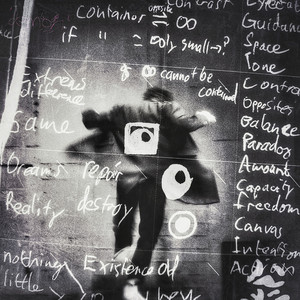 Contrast
Container
opposite
∞
if " = only small→?
∞ cannot be
contained
Extreme
difference
Same
Dreams repair
Reality destroy
nothing Existence of
little
Guidance
Space
Tone
Contra
Opposites
Balance
Paradox
Amount
Capacity
freedom
Canvas
Intention
Action